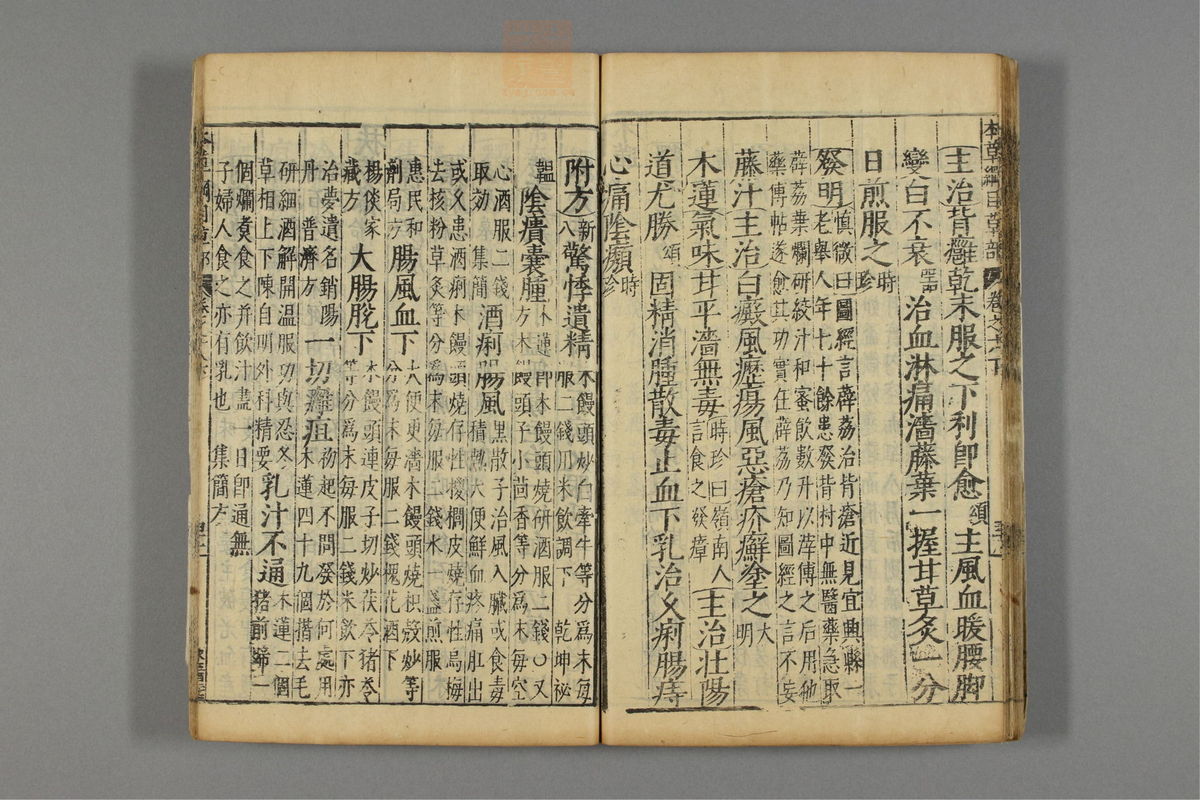 本草綱目草部 卷之十八下
主治背癰乾末服之下利即愈頌主風血暖腰脚
變白不衰器治血淋痛濇藤葉一握甘草炙一分
日煎服之時珍
發明慎微曰圖經言薜荔治背瘡近見宜興縣一
老舉人年七十餘患發背村中無醫藥急取
薜荔葉爛研絞汁和蜜飲數升以滓傅之后用他
藥傅帖遂愈其功實在薜荔乃知圖經之言不妄
藤汁主治白癜風癧瘍風惡瘡疥癬塗之大明
木蓮氣味甘平濇無毒時珍曰嶺南人言食之發瘴主治壯陽
道尤勝頌固精消腫散毒止血下乳治久痢腸痔
心痛陰㿗時珍
附方新八驚悸遺精木饅頭炒白牽牛等分爲末每
服二錢用米飲調下乾坤秘
韞陰㿗囊腫木蓮即木饅頭燒研酒服二錢○又
方木饅頭子小茴香等分爲末每空
心酒服二錢
取効集簡酒痢腸風黑散子治風入臟或食毒
積熱大便鮮血疼痛肛出
或久患酒痢木饅頭燒存性椶櫚皮燒存性烏梅
去核粉草炙等分爲末每服二錢水一盞煎服
惠民和
劑局方腸風血下大便更濇木饅頭燒枳殼炒等
分爲末每服二錢槐花酒下
楊倓家
藏方大腸脫下木饅頭連皮子切炒茯苓猪苓
等分爲末每服二錢米飲下亦
治夢遺名銷陽
丹普濟方一切癰疽初起不問發於何處用
木蓮四十九個揩去毛
研細酒解開温服功與忍冬
草相上下陳自明外科精要乳汁不通木蓮二個
猪前蹄一
個爛煮食之并飲汁盡一日即通無
子婦人食之亦有乳也集簡方